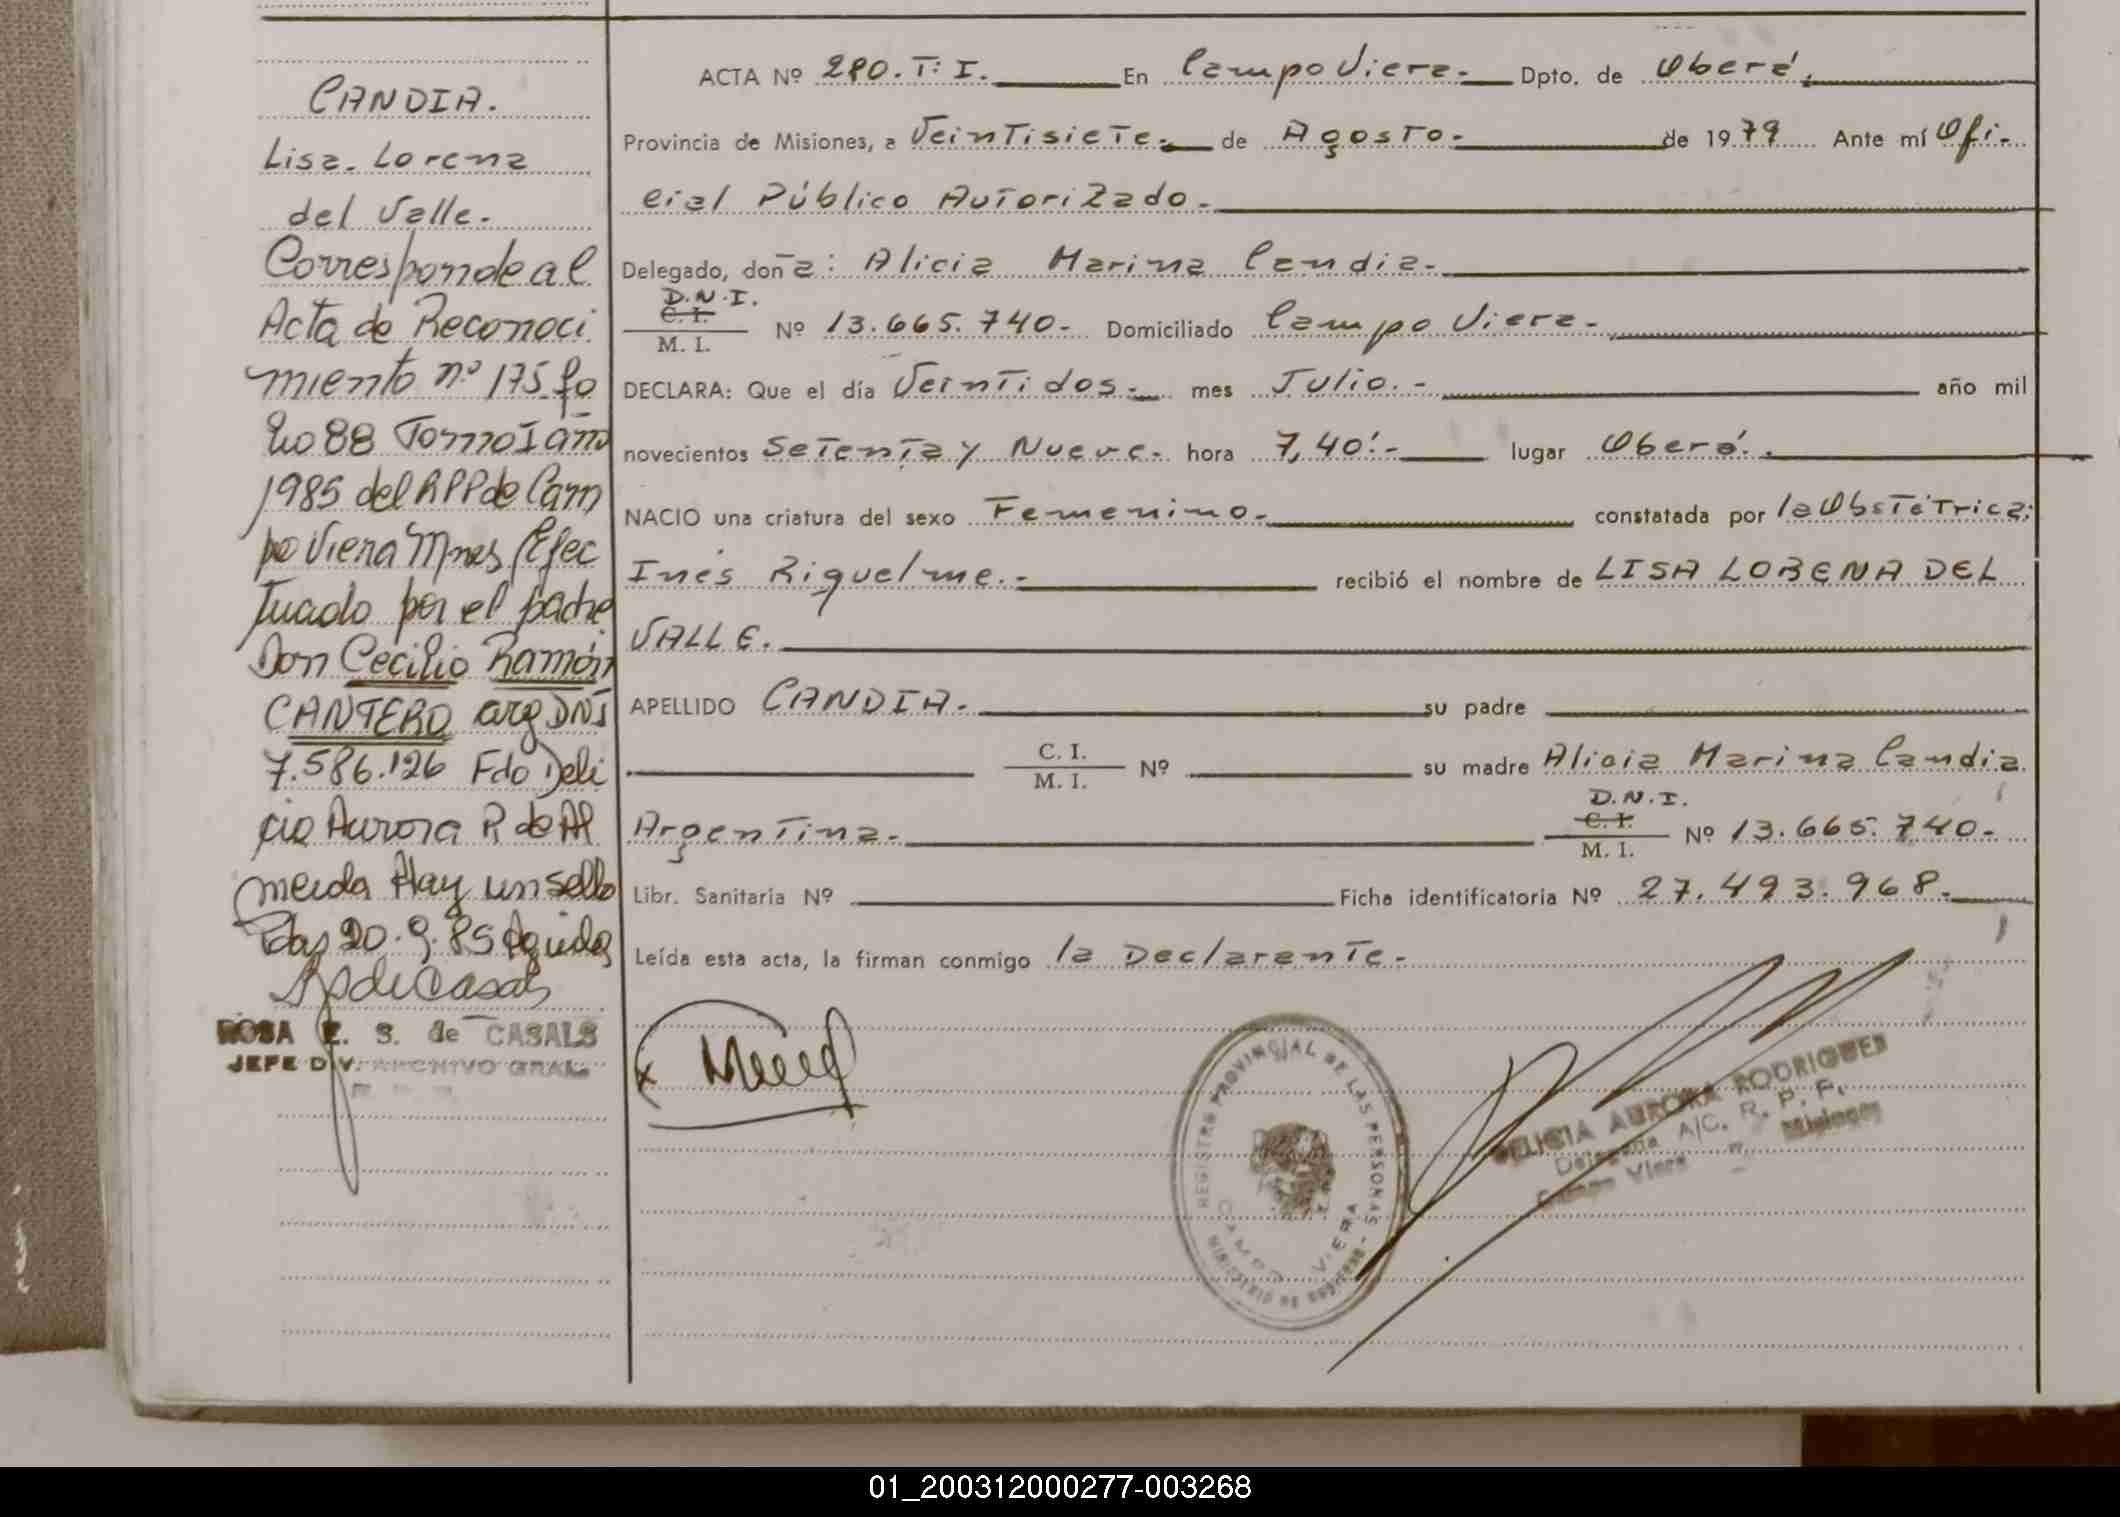 CANDIA.
Lisa. Lorena
del Valle.
Corresponde al
Acta de Reconoci
miento nº 175 fo
lio 88 Tomo I año
1985 del RPP de Cam
po Viera Mnes (Efec
tuado por el padre
Don Cecilio Ramón
CANTERO arg DNI
7.586.126 Fdo Deli
cia Aurora R de Al
meida Hay un sello
Pdas 20.9.85
ROSA E. S. de CASALS
JEFE DIV. ARCHIVO GRAL.
ACTA Nº 290. T: I. En Campo Viera.- Dpto. de Oberá.
Provincia de Misiones, a Veintisiete.- de Agosto.- de 1979 Ante mí Ofi-
cial Público Autorizado.-
Delegado, don a: Alicia Marina Candia.-
D.N.I.
C. I.
M. I. Nº 13.665.740.- Domiciliado Campo Viera.-
DECLARA: Que el día Veintidos.- mes Julio.- año mil
novecientos Setenta y Nueve.- hora 7,40'.- lugar Oberá.
NACIO una criatura del sexo Femenino.- constatada por la Obstétrica:
Inés Riquelme.- recibió el nombre de LISA LORENA DEL
VALLE.
APELLIDO CANDIA.- su padre
C. I.
M. I. Nº su madre Alicia Marina Candia
Argentina.- D.N.I.
C. I.
M. I. Nº 13.665.740.-
Libr. Sanitaria Nº Ficha identificatoria Nº 27.493.968.-
Leída esta acta, la firman conmigo la Declarante.-
REGISTRO PROVINCIAL DE LAS PERSONAS
CAMPO VIERA
MINISTERIO DE GOBIERNO
DELICIA AURORA RODRIGUES
Delegada A/C. R. P. P.
Campo Viera Misiones
01_200312000277-003268